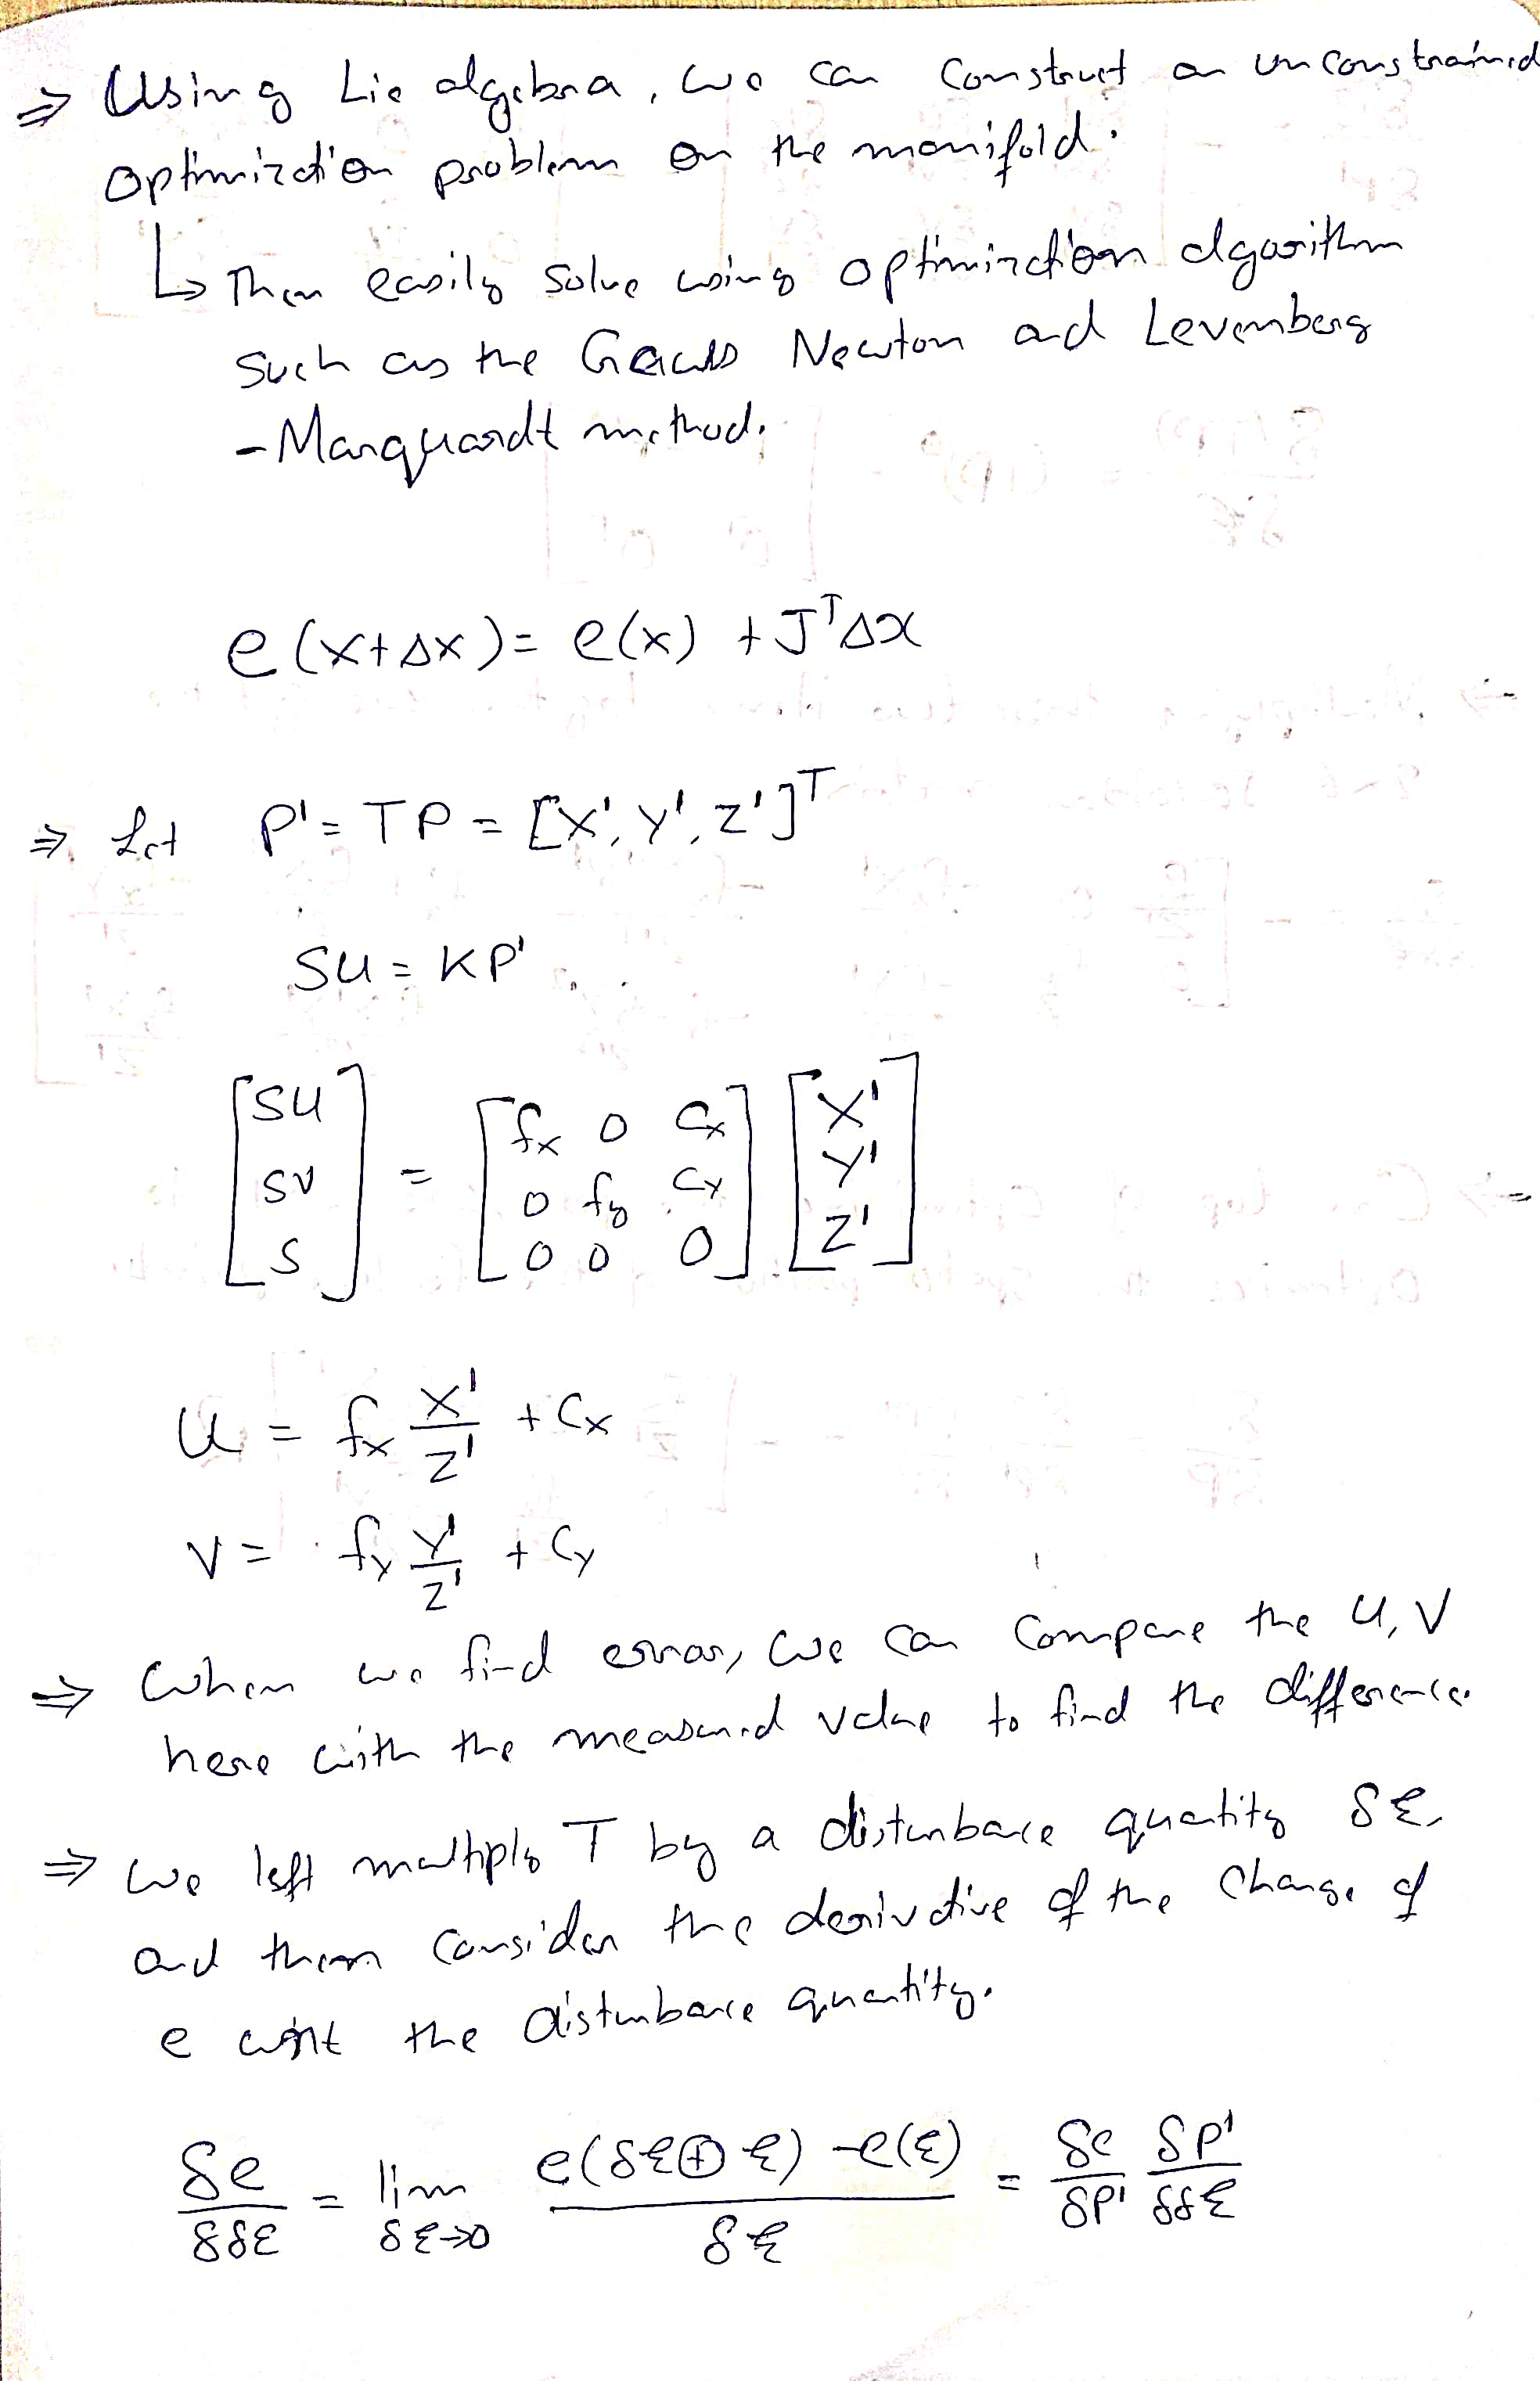 ⇒ Using Lie algebra, we can construct an unconstrained
optimization problem on the manifold.
↳ Then easily solve using optimization algorithm
such as the Gauss Newton and Levenberg
-Marquardt method.
e(x+Δx) = e(x) + JᵀΔx
⇒ Let P' = TP = [X', Y', Z']ᵀ
SU = KP'
[SU SV S] = [fx 0 Cx; 0 fy Cy; 0 0 0] [X' Y' Z']
U = fx X'/Z' + Cx
V = fy Y'/Z' + Cy
⇒ When we find error, we can compare the U, V
here with the measured value to find the difference.
⇒ We left multiply T by a disturbance quantity δξ,
and then consider the derivative of the change of
e wrt the disturbance quantity.
δe/δδξ = lim δξ→0 e(δξ⊕ξ) - e(ξ) / δξ = δe/δP' δP'/δδξ